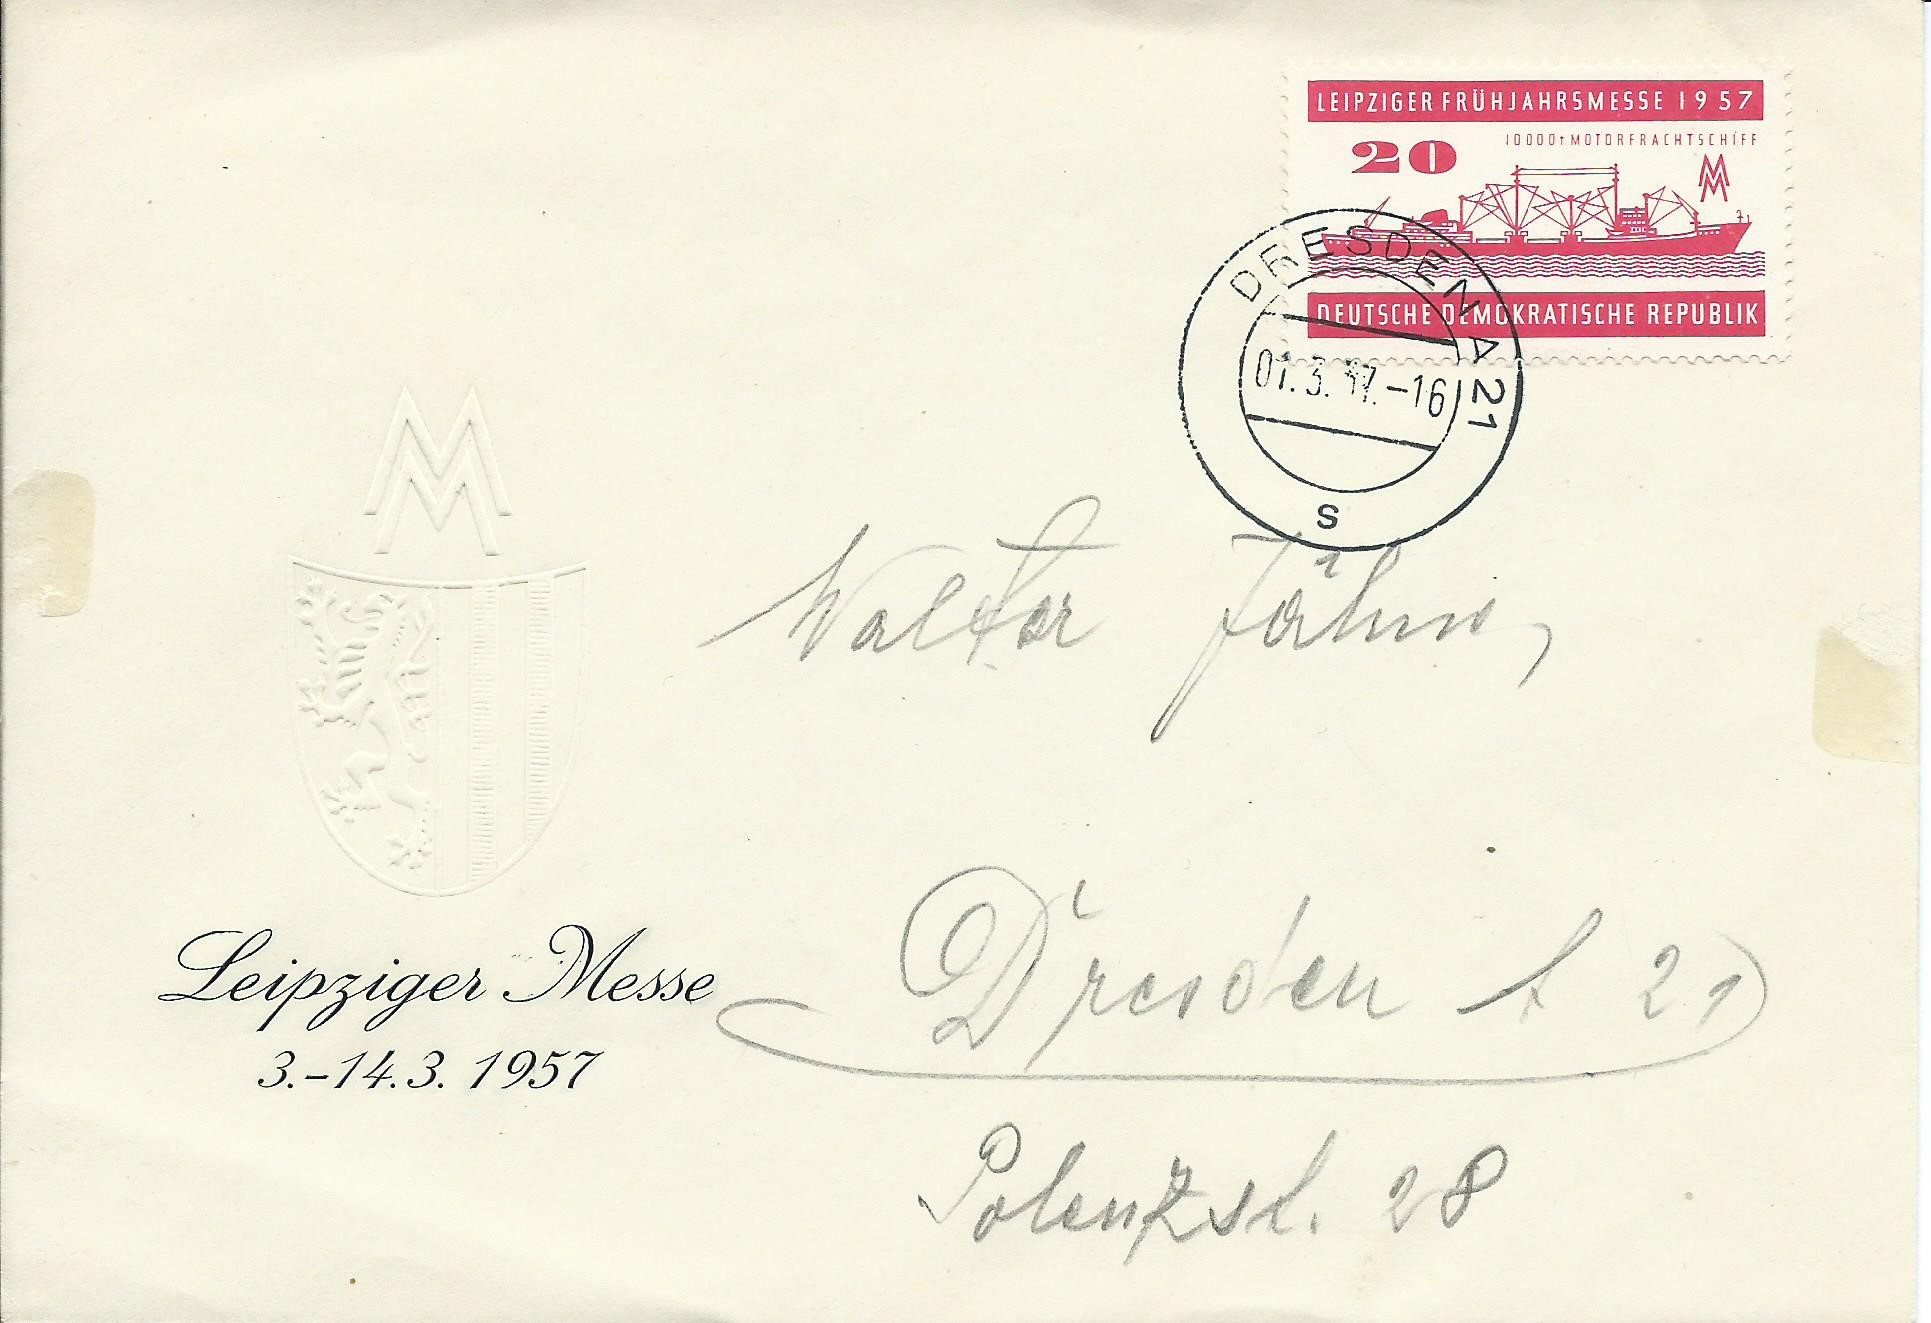 LEIPZIGER FRÜHJAHRSMESSE 1957
20
10000t MOTORFRACHTSCHIFF
MM
DEUTSCHE DEMOKRATISCHE REPUBLIK
DRESDEN A21
01.3.57.-16
s
MM
Walter Jähn,
Leipziger Messe
3.-14.3.1957
Dresden A 21
Polenzst. 28